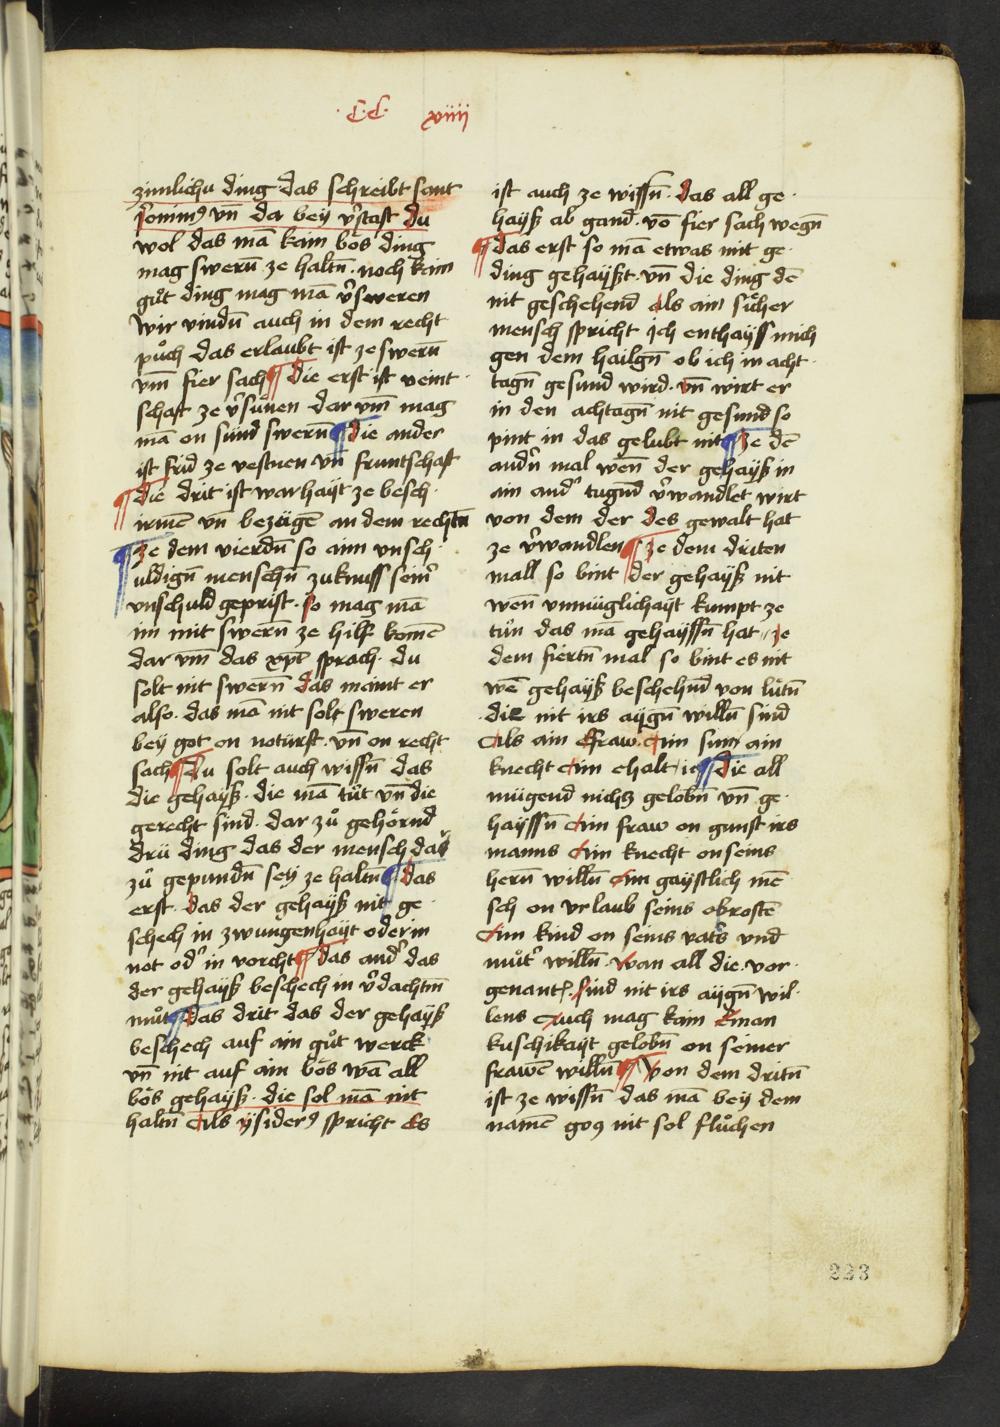 ·C·C· xviiij
zimlichu ding das schreibt sant
Jeronim⁹ vn̄ dar bey v̓stast du
wol das mā kain bös ding
mag swerñ ze haltñ · noch kain
guͦt ding mag mā v̓sweren
Wir vindñ auch in dem recht
puͦch das erlaubt ist ze swerñ
vm̄ fier sach ¶ die erst ist veint
schaft ze v̓suͤnen dar vm̄ mag
mā on suͤnd swerñ ¶ die ander
ist frid ze vestnen vn̄ fruntschaft
¶ die drit ist warhaẏt ze besch·
irmē vn̄ bezügē an dem rechtñ
¶ ze dem vierdñ so aim vnsch·
uldigñ menschñ zuknuss seinr̓
vnschuld geprist · so mag mā
im mit swerñ ze hilf komē
dar vm̄ das xp̄t sprach · du
solt nit swerñ das maint er
also · das mā nit solt sweren
bey got on notürft · vn̄ on recht
sach ¶ du solt auch wissñ das
die gehaẏß · die mā tuͤt vn̄ die
gerecht sind · dar zuͦ gehörnd
drü ding das der mensch dar̓
zuͦ gepundñ seẏ ze haltñ ¶ das
erst · das der gehaẏß nit ge·
schech in zwungenhaẏt oder in
not od̓ in vorcht ¶ das and̓ das
der gehaẏß beschech in v̓dachtm̄
muͦt ¶ das drit das der gehaẏß
beschech auf ain guͦt werck
vn̄ nit auf ain bös wā all
bös gehaẏß · die sol mā nit
haltñ Als ẏsider⁹ spricht Es
ist auch ze wissñ · das all ge·
haẏß ab gand · vō fier sach wegñ
¶ das erst so mā etwas mit ge·
ding gehaẏßt · vn̄ die ding dē
nit geschehend als ain sicher
mensch spricht ich enthaẏss mich
gen dem hailgñ ob ich in acht·
tagñ gesund wird · vn̄ wirt er
in den achtagñ nit gesund so
pint in das gelubt nit ¶ ze dē
andñ mal wen̄ der gehaẏß in
ain and̓ tugnd̄ v̓wandlet wirt
von dem der des gewalt hat
ze v̓wandlen ¶ ze dem driten
mall so bint der gehaẏß nit
wen̄ vnmüglichaẏt kumpt ze
tuͦn das mā gehaẏssñ hat · ze
dem fiertñ mal so bint es nit
wē gehaẏß beschehnd̄ von luͤtñ
· die nit irs aẏgñ willñ sind
Als ain fraw · ain sun ain
knecht ain ehalt · ¶ die all
mügend nichz gelobñ vn̄ ge·
haẏssñ Ain fraw on gunst irs
manns Ain knecht on seins
herñ willñ Ain gaẏstlich mē·
sch on vrlaub seins obrostē
Ain kind on seins vat̓s vnd
muͦt̓ willñ · Wan all die vor·
genant · sind nit irs aẏgñ wil·
lens Auch mag kain Eman
kuschikaẏt gelobñ on seiner
frawē willñ ¶ Von dem dritñ
ist ze wissñ das mā beẏ dem
namē go⁹ nit sol fluͦchen
223